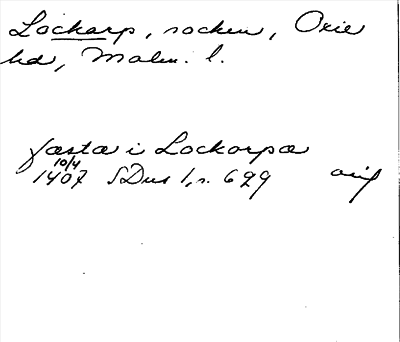 Lockarp, socken, Oxie
hd, Malm. l.
Jæstæ i Lockorpæ
10/4
1407 SDns 1, s. 699 orig